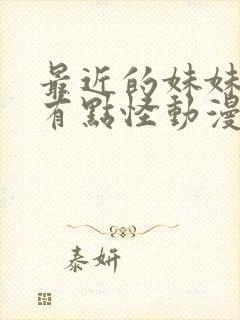 最近的妹妹
有點怪動漫
泰妍